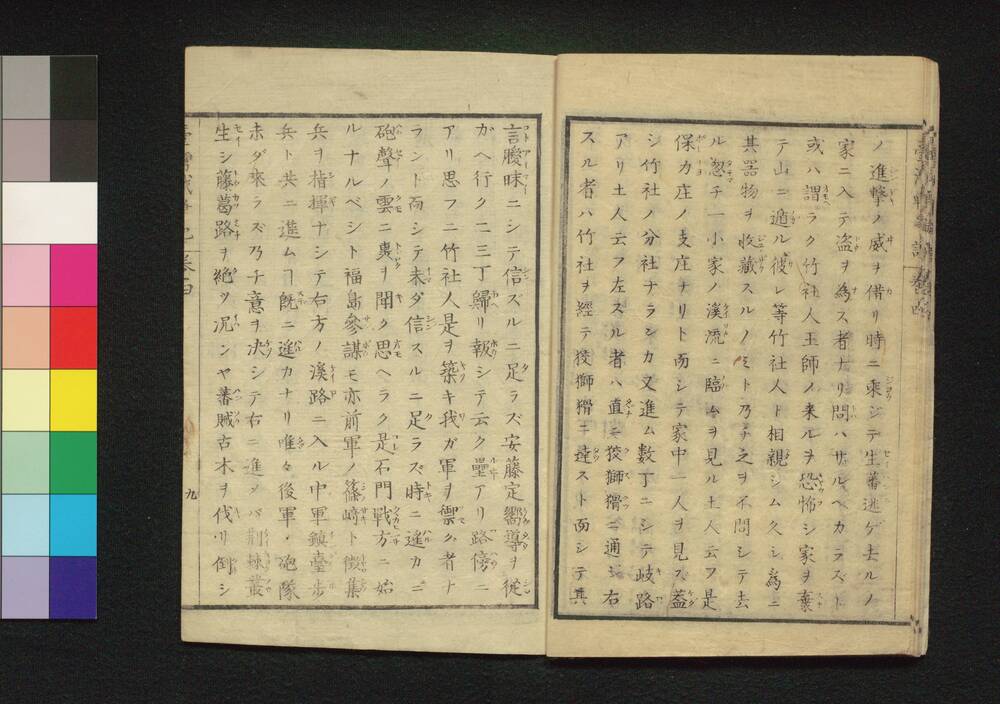 ノ進撃ノ威ヲ借リ時ニ乗ジテ生蕃逃ゲ去ルノ
家ニ入テ盗ヲ為ス者ナリ問ハザルベカラズト
或ハ謂ラク竹社人王師ノ来ルヲ恐怖シ家ヲ棄
テ山ニ遁ル彼レ等竹社人ト相親シム久シ為ニ
其器物ヲ收藏スルノミト乃チ之ヲ不問シテ去
ル忽チ一小家ノ溪流ニ臨ムヲ見ル土人云フ是
保力庄ノ支庄ナリト而シテ家中一人ヲ見ズ蓋
シ竹社ノ分社ナラシカ又進ム數丁ニシテ岐路
アリ土人云フ左スル者ハ直ニ狡獅猾ニ通シ右
スル者ハ竹社ヲ經テ狡獅猾ニ達スト而シテ其
言曖昧ニシテ信ズルニ足ラズ安藤定嚮導ヲ從
ガヘ行ク二三丁歸リ報シテ云ク壘アリ路傍ニ
アリ思フニ竹社人是ヲ築キ我ガ軍ヲ禦ク者ナ
ラント而シテ未ダ信スルニ足ラズ時ニ遙カニ
砲聲ノ雲ニ裏ヲ聞ク思ヘラク是石門戦方ニ始
ルナルベシト福島參謀モ亦前軍ノ篠﨑ト徴集
兵ヲ指揮ナシテ右方ノ溪路ニ入ル中軍鎮臺歩
兵ト共ニ進ムヿ既ニ遙カナリ唯々後軍・砲隊
未ダ來ラズ乃チ意ヲ决シテ右ニ進メバ荆棘叢
生シ藤葛路ヲ絶ツ况ンヤ蕃賊古木ヲ伐リ倒シ
九